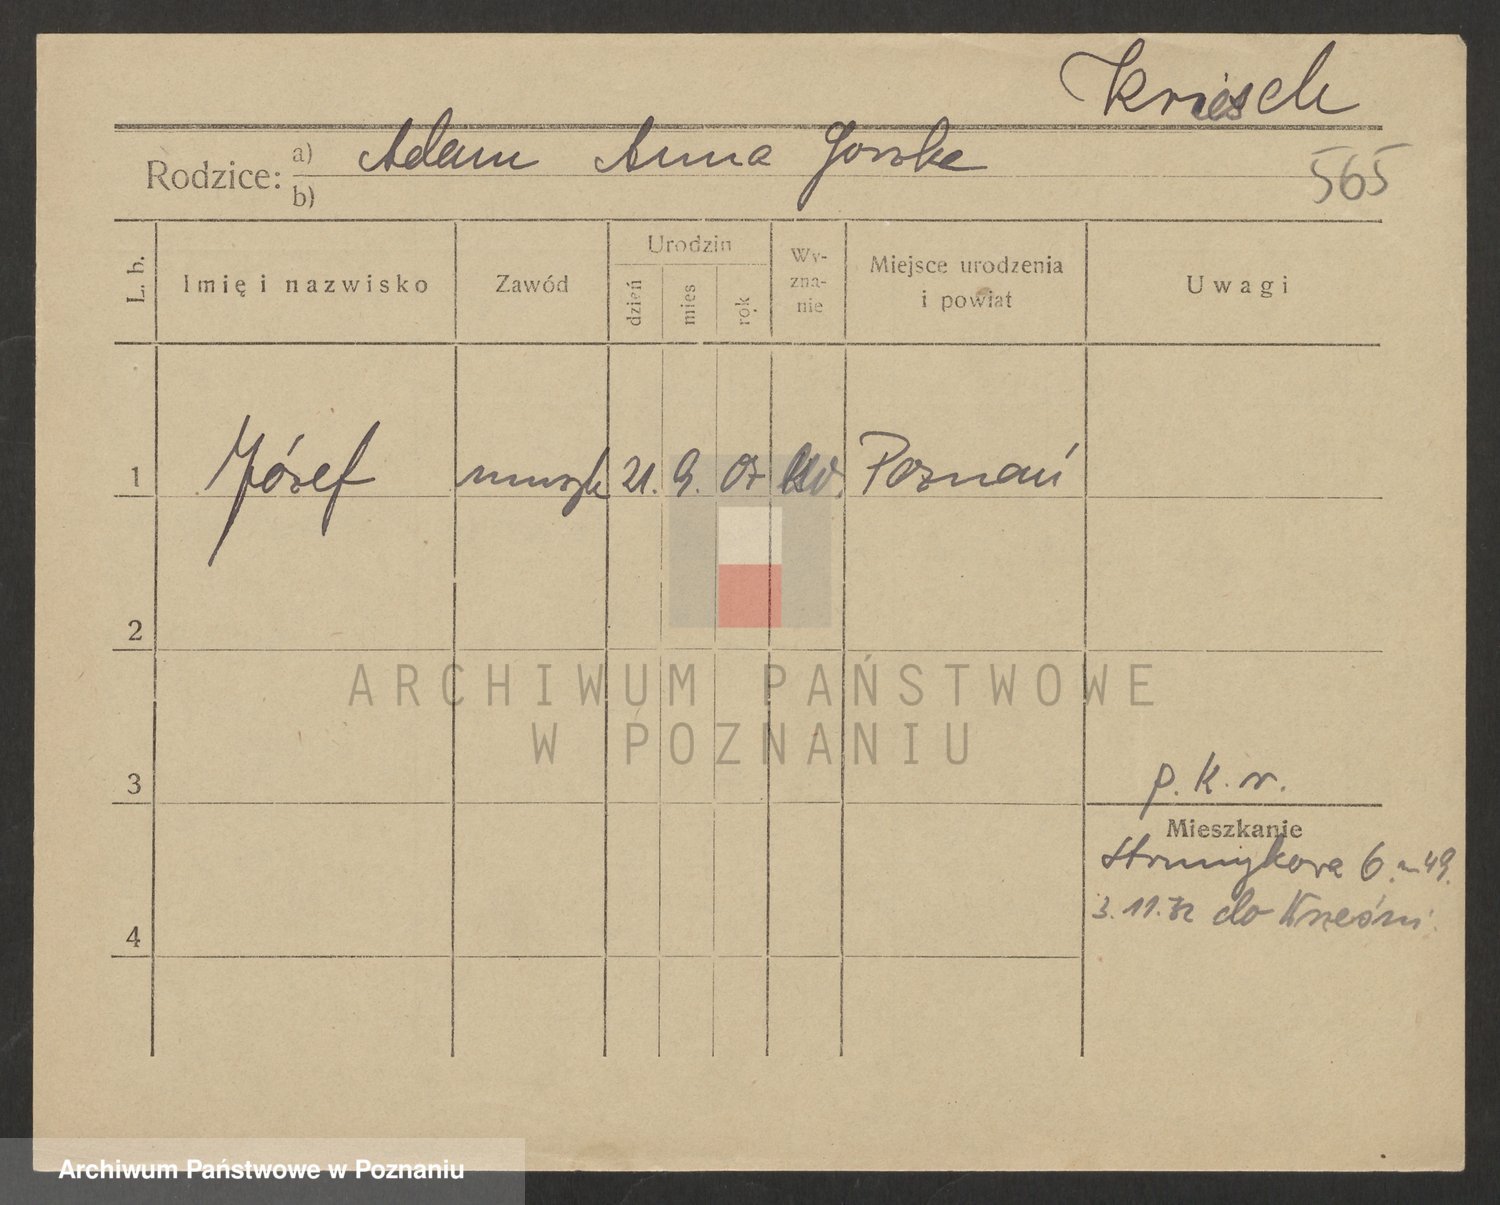 Kriesch
Rodzice: a) Adam Anna Gorska
b)
565
L. b. Imię i nazwisko Zawód Urodzin dzień mies rok Wy-zna-nie Miejsce urodzenia i powiat Uwagi
1 Józef muzyk 21. 9. 07 Poznań
2
ARCHIWUM PAŃSTWOWE
W POZNANIU
3
p. k. r.
Mieszkanie
Strumykowa 6. m 49.
3. 11. 32 do Wrześni.
4
Archiwum Państwowe w Poznaniu